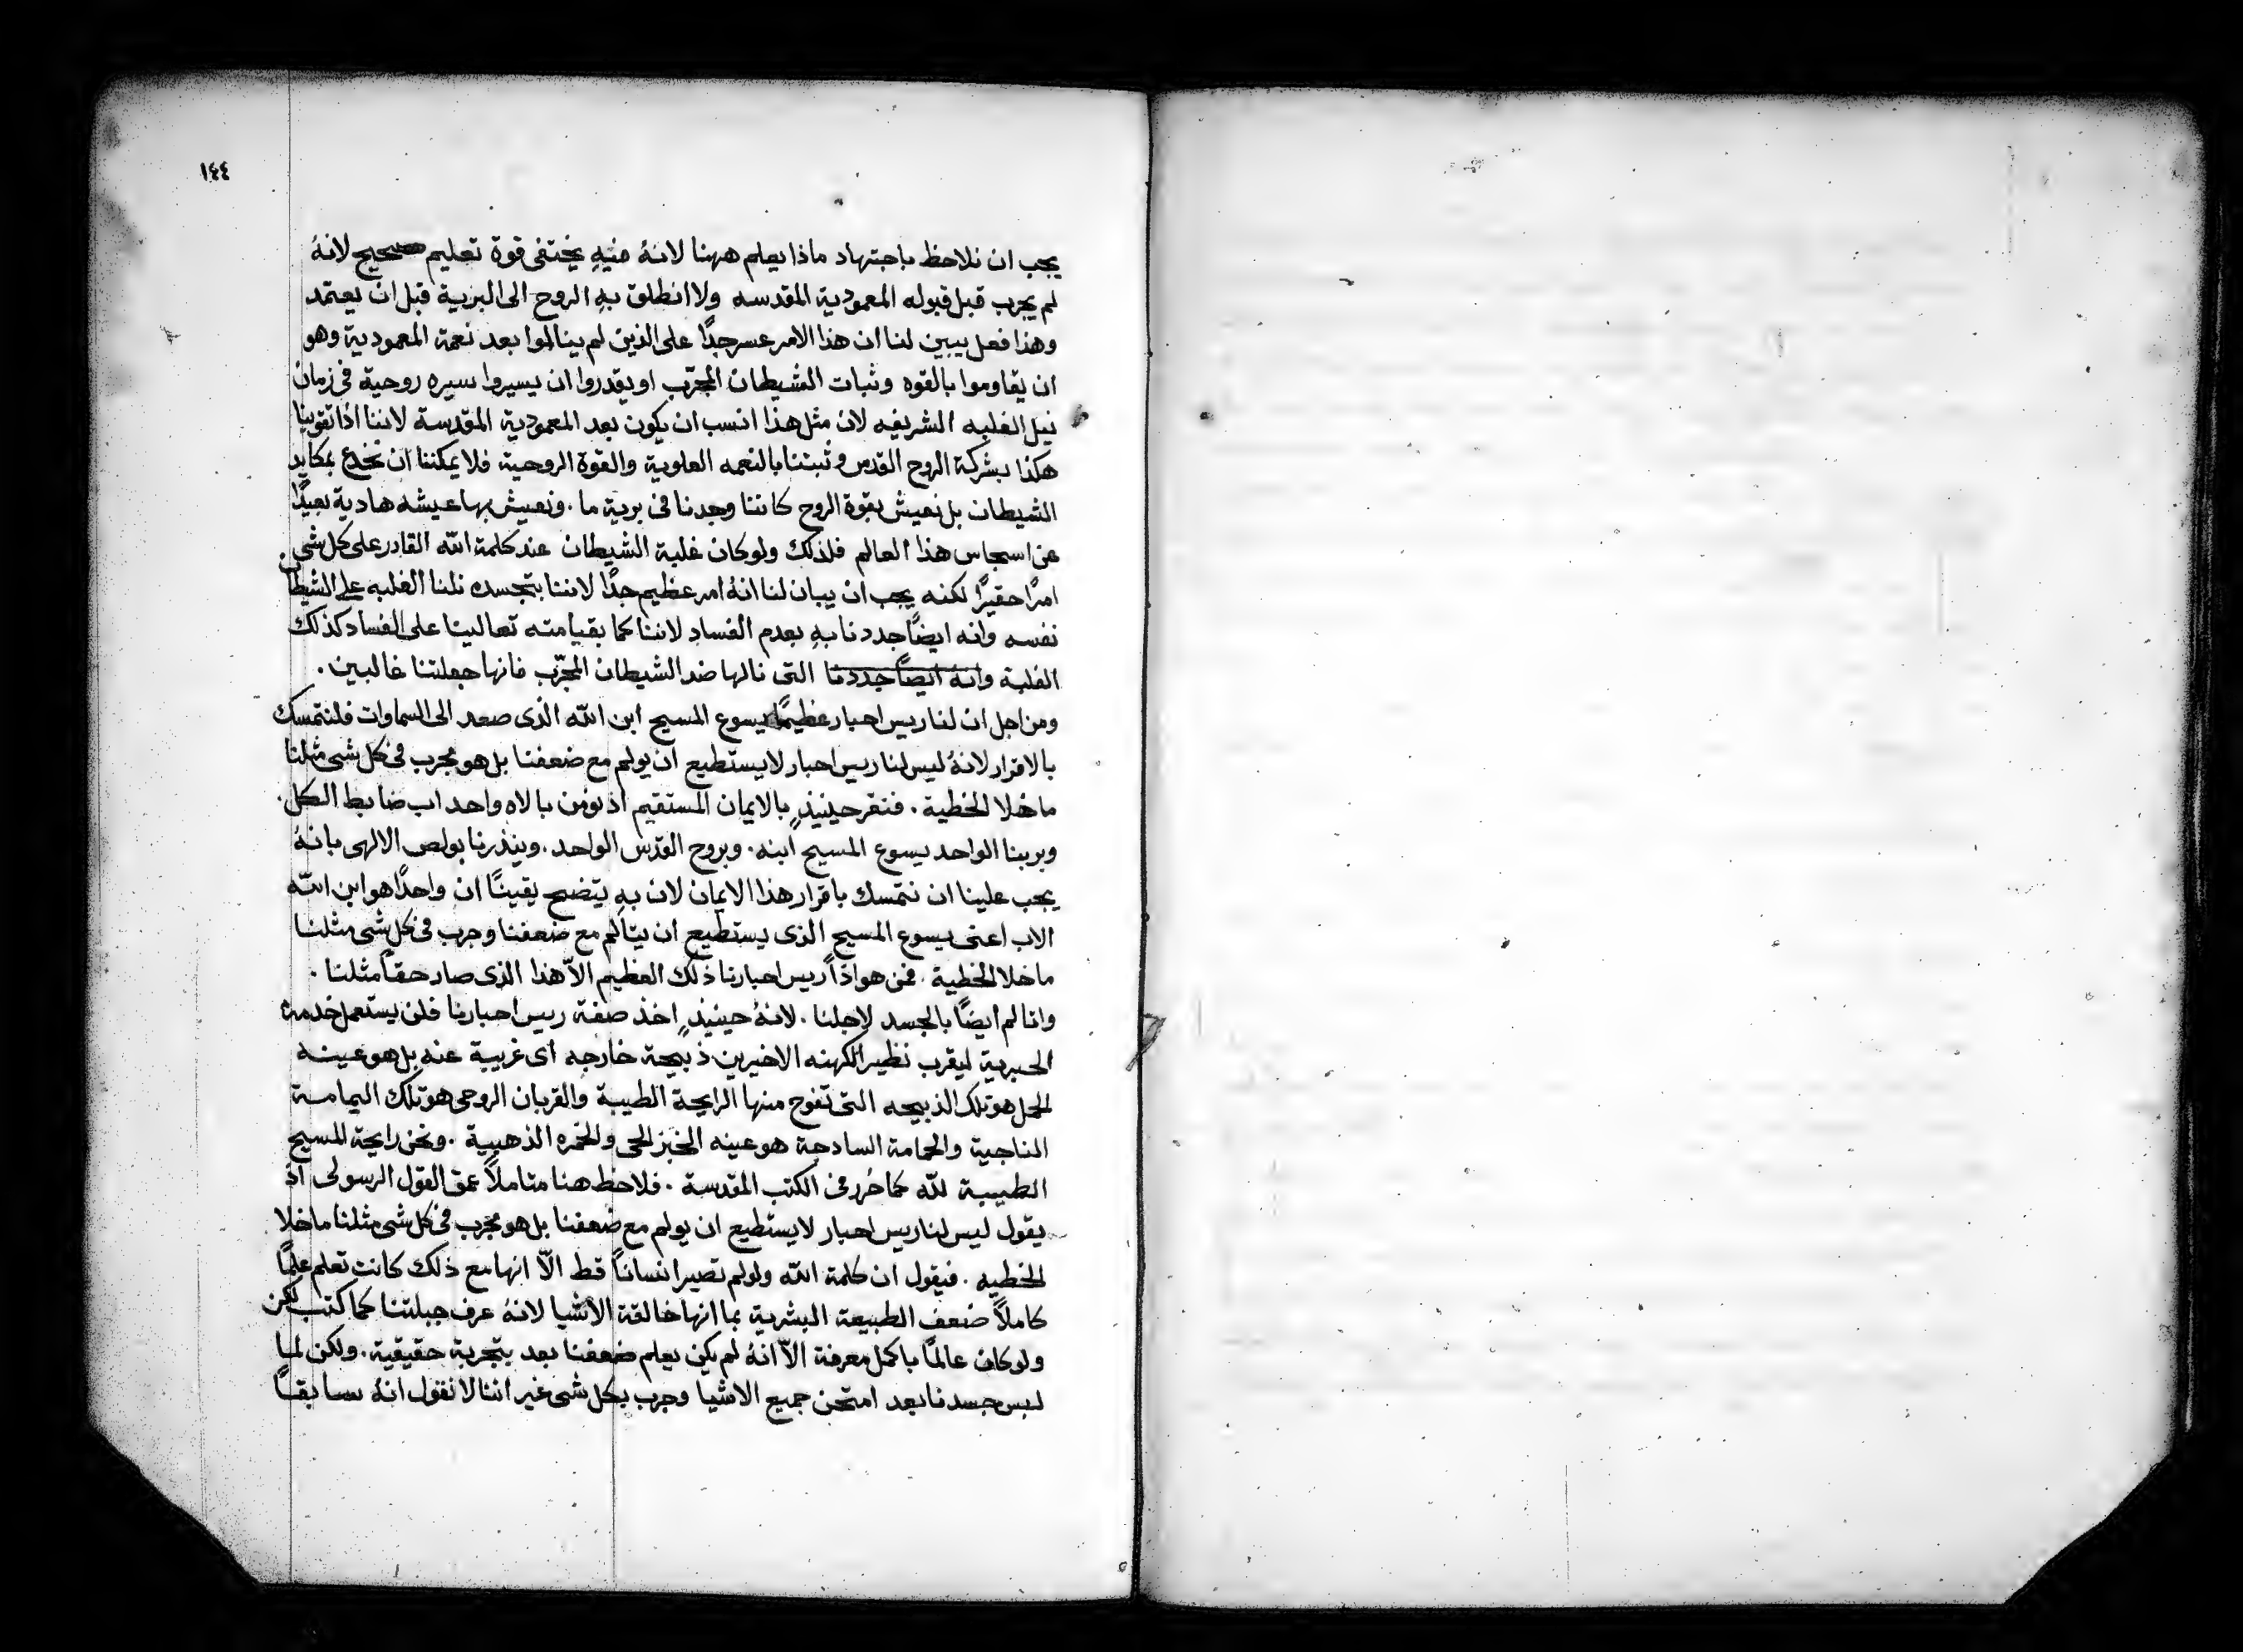 ١٤٤
يجب ان نلاحظ باجتهاد ماذا يعلم ههنا لانهُ فيهِ يختفى قوة تعليم صحيح لانهُ
لم يجرب قبل قبوله المعمودية المقدسه ولا انطلق بهِ الروح الى البرية قبل ان يعتمد
وهذا فعل يبين لنا ان هذا الامر عسر جدًا على الذين لم ينالوا بعد نعمة المعمودية وهو
ان يقاوموا بالقوه وثبات الشيطان المجرّب او يقدروا ان يسيروا سيره روحية فى زمان
نيل الغلبه الشريفه لان مثل هذا انسب ان يكون بعد المعمودية المقدسة لاننا اذا تقوينا
هكذا بشركة الروح القدس وثبتنا بالنعمه العلوية والقوة الروحية فلا يمكننا ان نخدع بمكايد
الشيطان بل نعيش بقوة الروح كاننا وجدنا فى برية ما . ونعيش بها عيشه هادية بعيدًا
عن اسجاس هذا العالم فلذلك ولو كان غلبة الشيطان عند كلمة اللّه القادر على كل شى
امرًا حقيرًا لكنه يجب ان يبان لنا انهُ امر عظيم جدًا لاننا بتجسده نلنا الغلبه على الشيطان
نفسه وانه ايضًا جددنا بهِ بعدم الفساد لاننا كما بقيامته تعالينا على الفساد كذلك
الغلبة وانهُ ايضًا جددنا التى نالها ضد الشيطان المجرّب فانها جعلتنا غالبين .
ومن اجل ان لنا ريس احبار عظيمًا يسوع المسيح ابن اللّه الذى صعد الى السماوات فلنتمسك
بالاقرار لانهُ ليس لنا ريس احبار لا يستطيع ان يولم مع ضعفنا بل هو مجرب فى كل شى مثلنا
ما خلا الخطية . فنقر حينيذٍ بالايمان المستقيم اذ نومن بالاه واحد اب ضابط الكل .
وبربنا الواحد يسوع المسيح ابنه . وبروح القدس الواحد . وينذرنا بولص الالهى بانهُ
يجب علينا ان نتمسك باقرار هذا الايمان لان بهِ يتضح يقينًا ان واحدًا هو ابن اللّه
الاب اعنى يسوع المسيح الذى يستطيع ان يتالم مع ضعفنا وجرب فى كل شى مثلنا
ما خلا الخطية . فمن هو اذًا ريس احبارنا ذلك العظيم الاّ هذا الذى صار حقًا مثلنا .
وتالم ايضًا بالجسد لاجلنا . لانهُ حينيذٍ اخذ صفة ريس احبارنا فلن يستعمل خدمة
الحبرية ليقرب نظير الكهنه الاخيرين ذبيحة خارجه اى غريبة عنه بل هو عينه
الحمل هو تلك الذبيحه التى تفوح منها الرايحة الطيبة والقربان الروحى هو تلك اليمامة
المناجية والحمامة السادجة هو عينه الخبز الحى والخمره الذهبية . ونحن رايحة المسيح
الطيبة للّه كما حُرر فى الكتب المقدسة . فلاحظ هنا متاملًا عمق القول الرسولى اذ
يقول ليس لنا ريس احبار لا يستطيع ان يولم مع ضعفنا بل هو مجرب فى كل شى مثلنا ما خلا
الخطيه . فيقول ان كلمة اللّه ولو لم تصير انسانًا قط الاّ انها مع ذلك كانت تعلم علمًا
كاملًا ضعف الطبيعة البشرية بما انها خالقة الاشيا لانهُ عرف جبلتنا كما كتب لكن
ولو كان عالمًا باكمل معرفة الاّ انهُ لم يكن يعلم ضعفنا بعد بتجربة حقيقية . ولكن لما
لبس جسدنا بعد امتحن جميع الاشيا وجرب بكل شى غير اننا لا نقول انهُ سابقًا